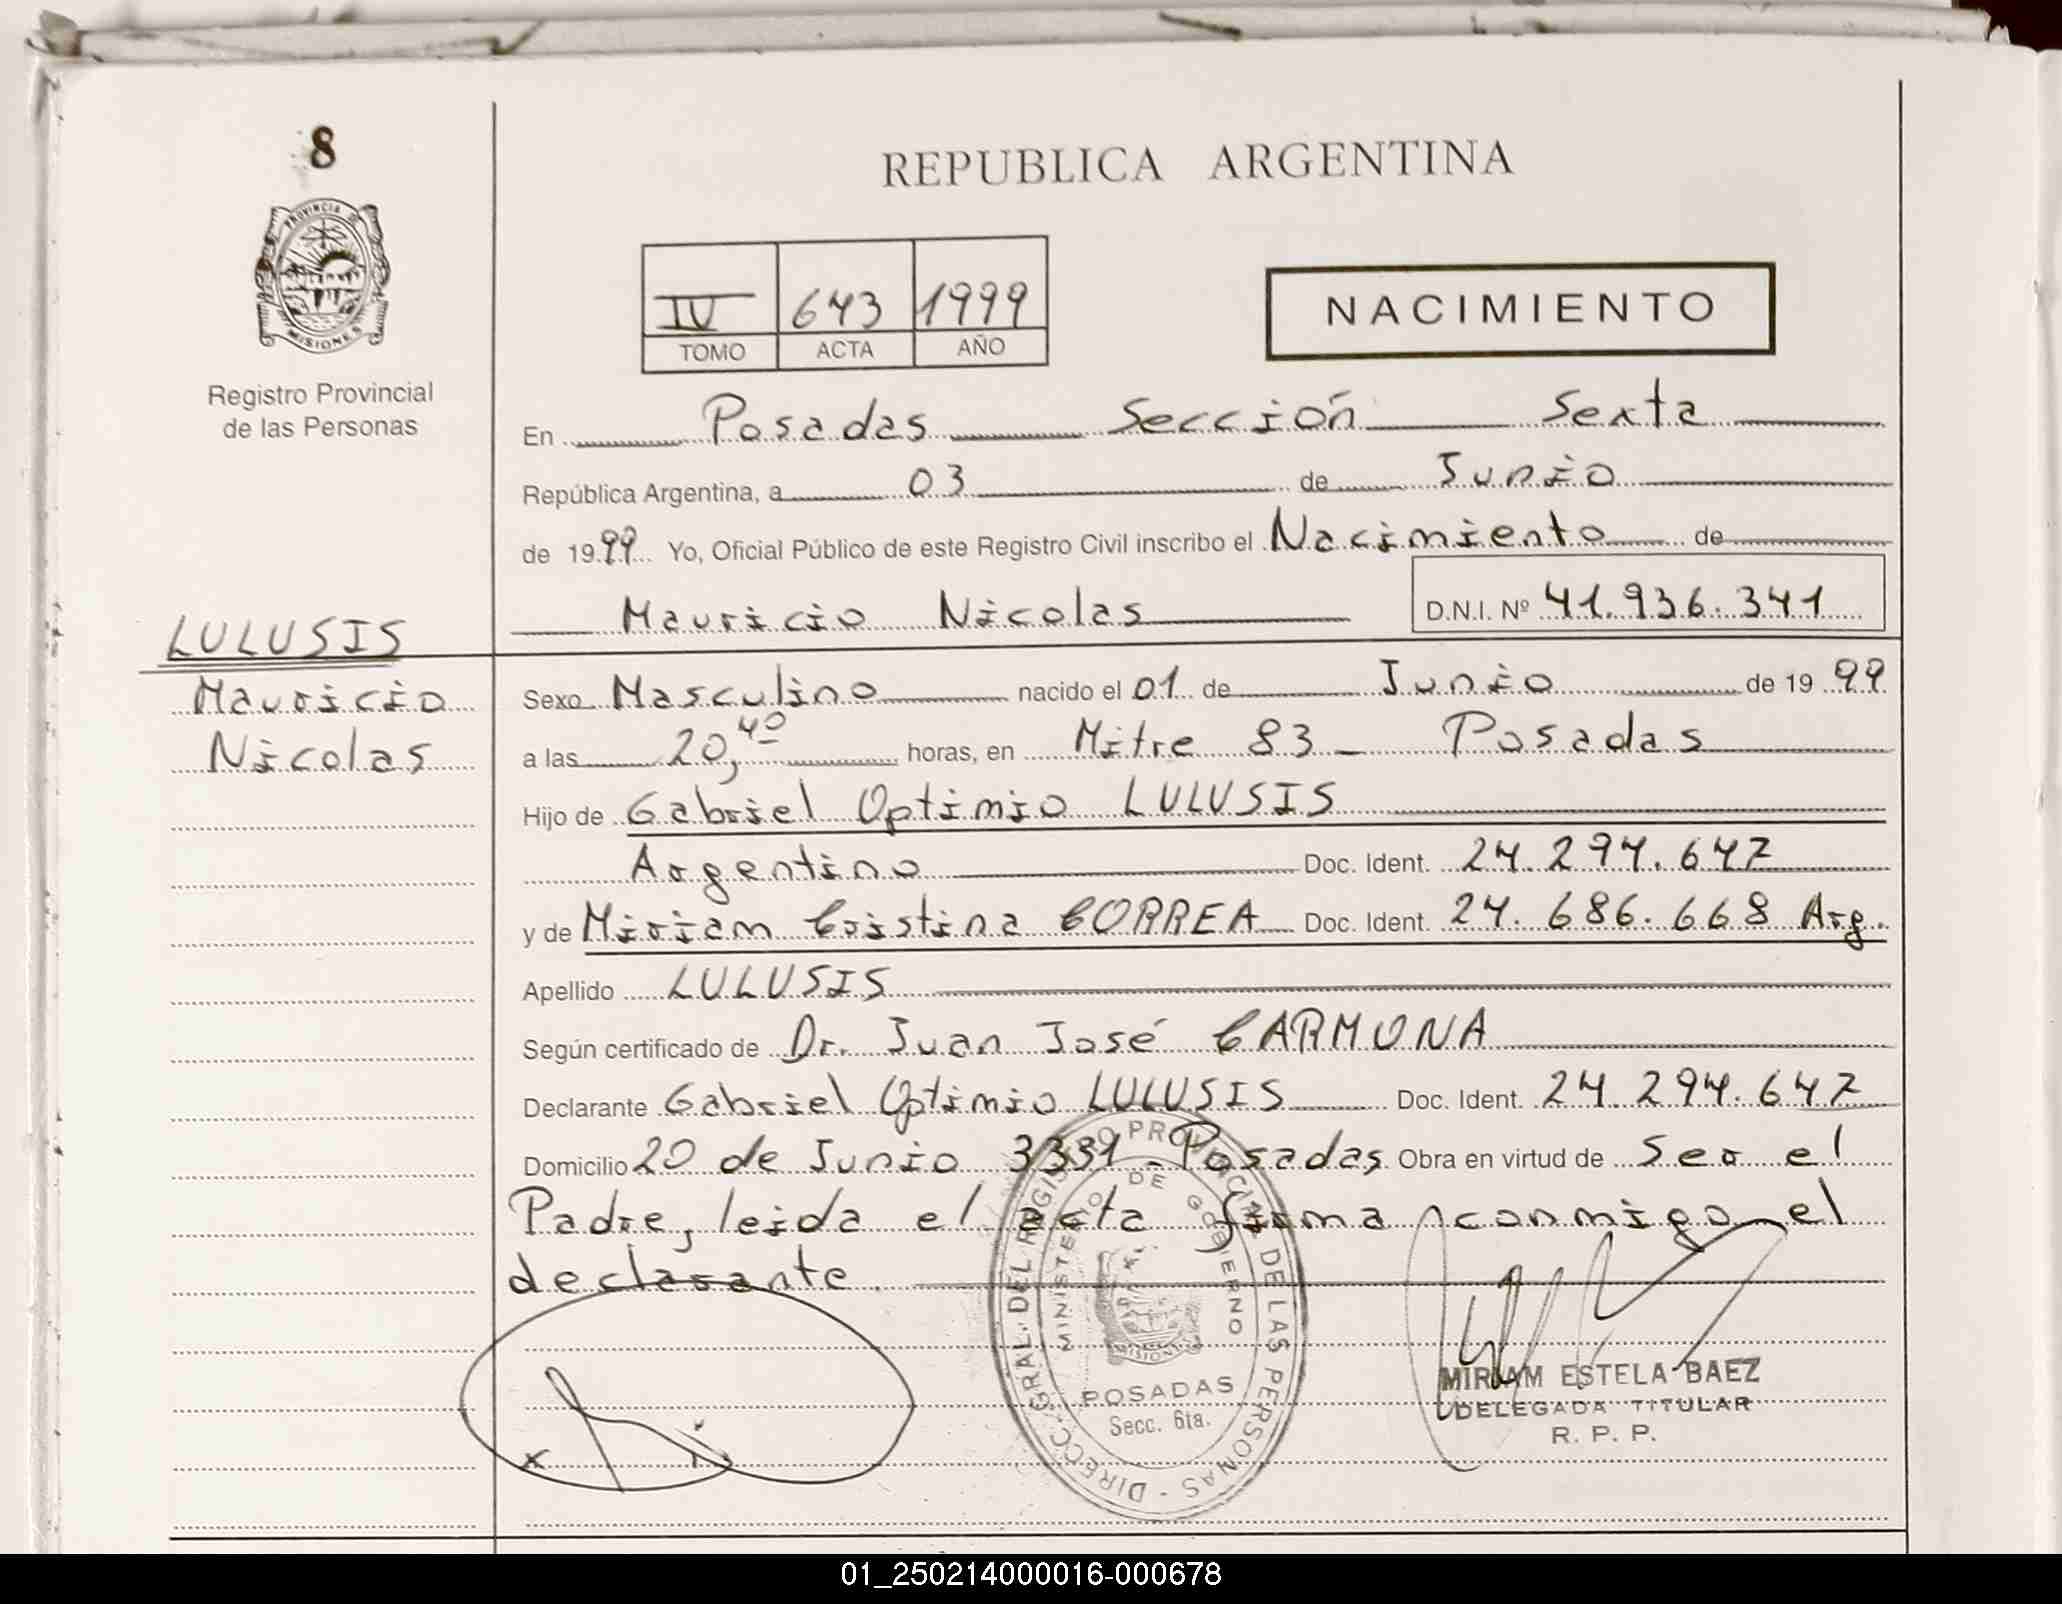 8
PROVINCIA DE
MISIONES
Registro Provincial
de las Personas
REPUBLICA ARGENTINA
IV 643 1999
TOMO ACTA AÑO
NACIMIENTO
En Posadas Sección Sexta
República Argentina, a 03 de Junio
de 1999 Yo, Oficial Público de este Registro Civil inscribo el Nacimiento de
Mauricio Nicolas D.N.I. Nº 41.936.341
LULUSIS
Mauricio
Nicolas
Sexo Masculino nacido el 01 de Junio de 1999
a las 20,40 horas, en Mitre 83 - Posadas
Hijo de Gabriel Optimio LULUSIS
Argentino Doc. Ident. 24.294.647
y de Miriam Cristina CORREA Doc. Ident. 24.686.668 Arg.
Apellido LULUSIS
Según certificado de Dr. Juan José CARMONA
Declarante Gabriel Optimio LULUSIS Doc. Ident. 24.294.647
Domicilio 20 de Junio 3331 - Posadas Obra en virtud de Ser el
Padre, leida el acta firma conmigo el
declarante.
DIRECC. GRAL. DEL REGISTRO PROVINCIAL DE LAS PERSONAS -
MINISTERIO DE GOBIERNO
MISIONES
POSADAS
Secc. 6ta.
MIRIAM ESTELA BAEZ
DELEGADA TITULAR
R. P. P.
01_250214000016-000678